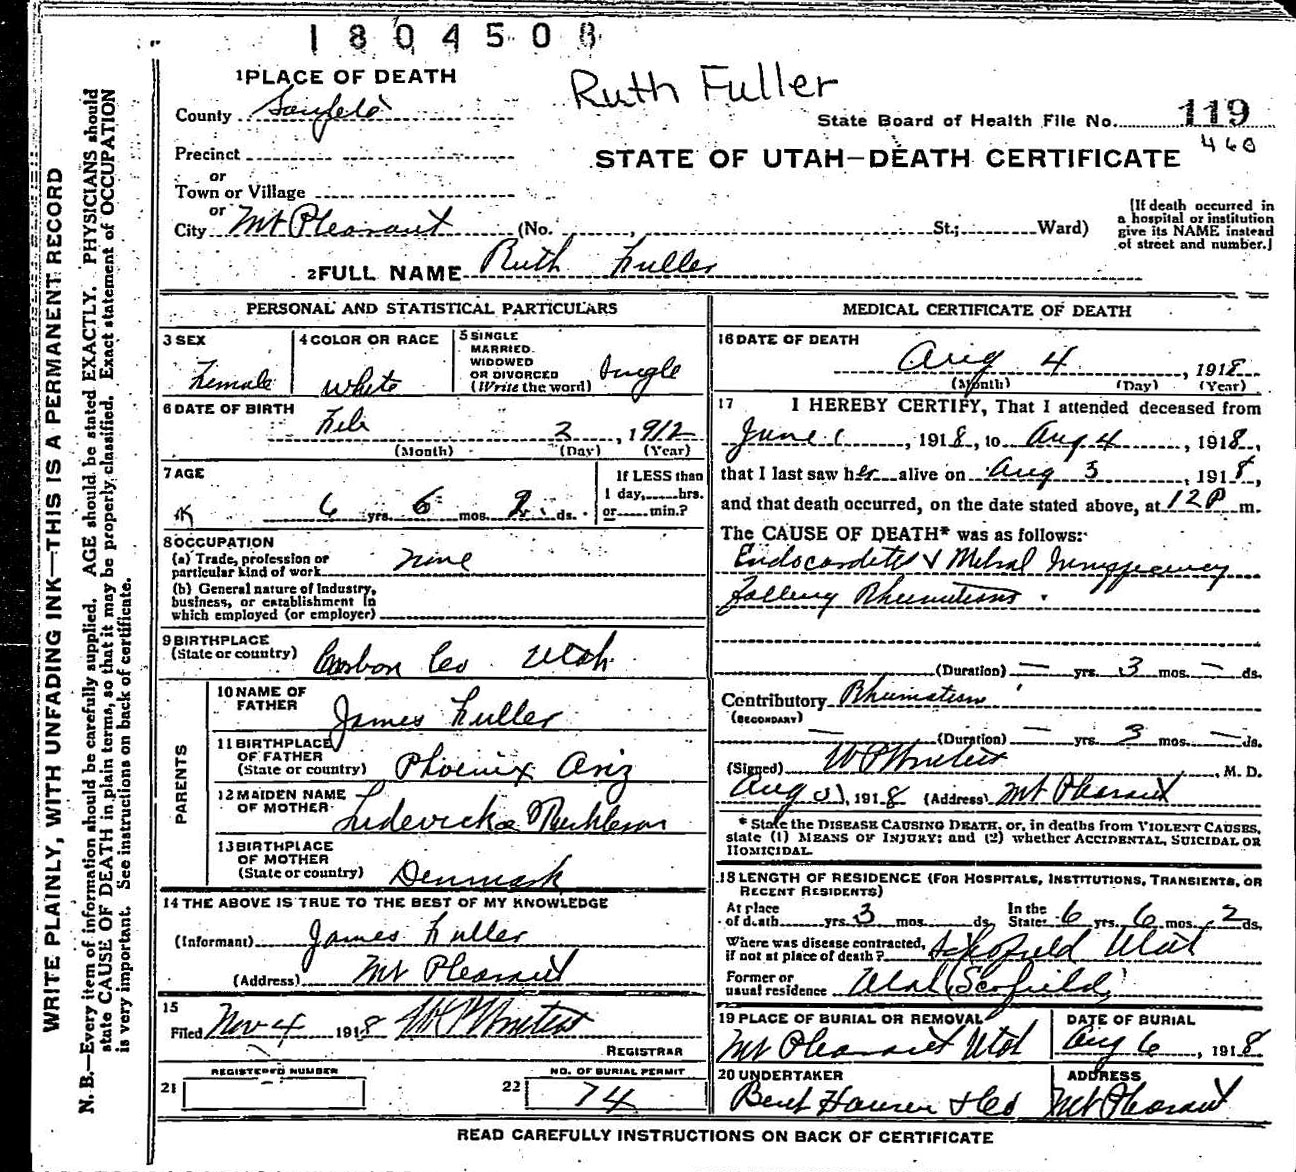 1804508
1 PLACE OF DEATH
Ruth Fuller
County Sanpete
State Board of Health File No. 119
460
Precinct
or
STATE OF UTAH—DEATH CERTIFICATE
Town or Village
or
City Mt Pleasant (No. , St.; Ward)
(If death occurred in
a hospital or institution
give its NAME instead
of street and number.)
2 FULL NAME Ruth Fuller
PERSONAL AND STATISTICAL PARTICULARS
3 SEX
Female
4 COLOR OR RACE
White
5 SINGLE
MARRIED.
WIDOWED
OR DIVORCED
(Write the word) Single
6 DATE OF BIRTH
Feb 2, 1912
(Month) (Day) (Year)
7 AGE
6 yrs. 6 mos. 2 ds.
If LESS than
1 day, hrs.
or min.?
8 OCCUPATION
(a) Trade, profession or
particular kind of work None
(b) General nature of Industry,
business, or establishment in
which employed (or employer)
9 BIRTHPLACE
(State or country) Carbon Co Utah
PARENTS
10 NAME OF
FATHER James Fuller
11 BIRTHPLACE
OF FATHER
(State or country) Phoenix Ariz
12 MAIDEN NAME
OF MOTHER
13 BIRTHPLACE
OF MOTHER
(State or country) Denmark
14 THE ABOVE IS TRUE TO THE BEST OF MY KNOWLEDGE
(Informant) James Fuller
(Address) Mt Pleasant
15
Filed Nov 4 1918
REGISTRAR
REGISTERED NUMBER
21
NO. OF BURIAL PERMIT
22 74
MEDICAL CERTIFICATE OF DEATH
16 DATE OF DEATH
Aug 4, 1918
(Month) (Day) (Year)
17 I HEREBY CERTIFY, That I attended deceased from
June 1, 1918, to Aug 4, 1918,
that I last saw her alive on Aug 3, 1918,
and that death occurred, on the date stated above, at 12 P m.
The CAUSE OF DEATH* was as follows:
Endocarditis & Mitral
Rheumatism.
(Duration) — yrs. 3 mos. — ds.
Contributory Rhumatism
(SECONDARY)
(Duration) — yrs. 3 mos. — ds.
(Signed) , M. D.
Aug , 1918 (Address) Mt Pleasant
* State the DISEASE CAUSING DEATH, or, in deaths from VIOLENT CAUSES,
state (1) MEANS OF INJURY; and (2) whether ACCIDENTAL, SUICIDAL OR
HOMICIDAL.
18 LENGTH OF RESIDENCE (FOR HOSPITALS, INSTITUTIONS, TRANSIENTS, OR
RECENT RESIDENTS)
At place
of death yrs. 3 mos. ds.
In the
State 6 yrs. 6 mos. 2 ds.
Where was disease contracted,
if not at place of death? Schofield Utah
Former or
usual residence Utah (Scofield)
19 PLACE OF BURIAL OR REMOVAL
Mt Pleasant Utah
DATE OF BURIAL
Aug 6, 1918
20 UNDERTAKER
ADDRESS
Mt Pleasant
READ CAREFULLY INSTRUCTIONS ON BACK OF CERTIFICATE
WRITE PLAINLY, WITH UNFADING INK—THIS IS A PERMANENT RECORD
N. B.—Every item of information should be carefully supplied. AGE should be stated EXACTLY. PHYSICIANS should
state CAUSE OF DEATH in plain terms, so that it may be properly classified. Exact statement of OCCUPATION
is very important. See instructions on back of certificate.